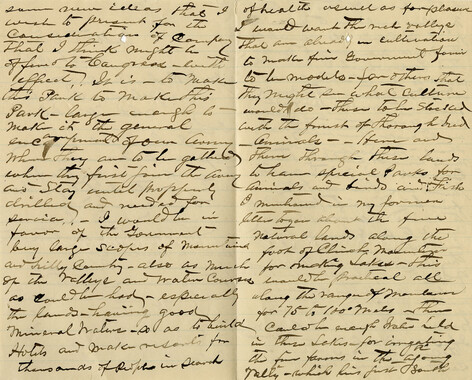 some new ideas that I
wish to present for the
Consideration of Company
That I think might be
offered to Congress with
effect. It is to make
this Park to Make this
Park large enough to
make it the general
encampment of our Army
When they are to be gathered
when they first join the army
and Stay until properly
drilled and needed for
service. I would be in
favor of the Government
buy large Scopes of Mountains
and Hilly Country - also as much
of the Valleys and Water Courses
as could be had - especially
the lands having good
Mineral Water - so as to build
Hotels and make resorts for
thousands of people in search
of health as well as for pleasure
I would want the rich valleys
that are already in cultivation
to make fine Government farms
to be models - for others that
they might see what Culture
would do - these to be stocked
with the finest of thorough bred
animals - Here and
there through these lands
to have special Parks for
animals and birds and fish
I mentioned in my former
letter about the fine
Natural lands along the
foot of Clinch Mountain
for making Lakes - this
would be practical all
along the range of Mountain
for 75 to 100 Miles - there
could be enough Water held
in these Lakes - for irrigating
the fine farms in the
Valley - which has fine